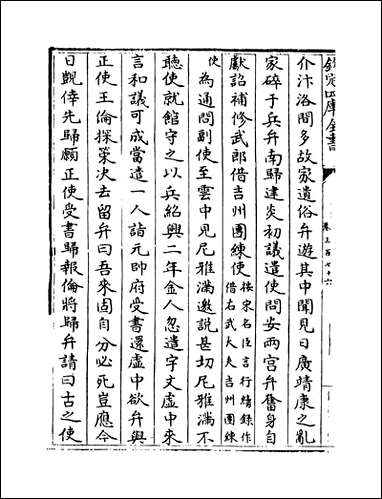 欽定四庫全書
卷三百七十六
介汴洛間多故家遺俗弁遊其中聞見日廣靖康之亂
家碎于兵弁南歸建炎初議遣使問安兩宮弁奮身自
獻詔補修武郎借吉州團練使
按宋名臣言行續錄作
借右武大夫吉州團練
使
為通問副使至雲中見尼雅滿邀說甚切尼雅滿不
聽使就館守之以兵紹興二年金人忽遣宇文虛中來
言和議可成當遣一人詣元帥府受書還虛中欲弁與
正使王倫探策決去留弁曰吾來固自分必死豈應今
日覬倖先歸願正使受書歸報倫將歸弁請曰古之使